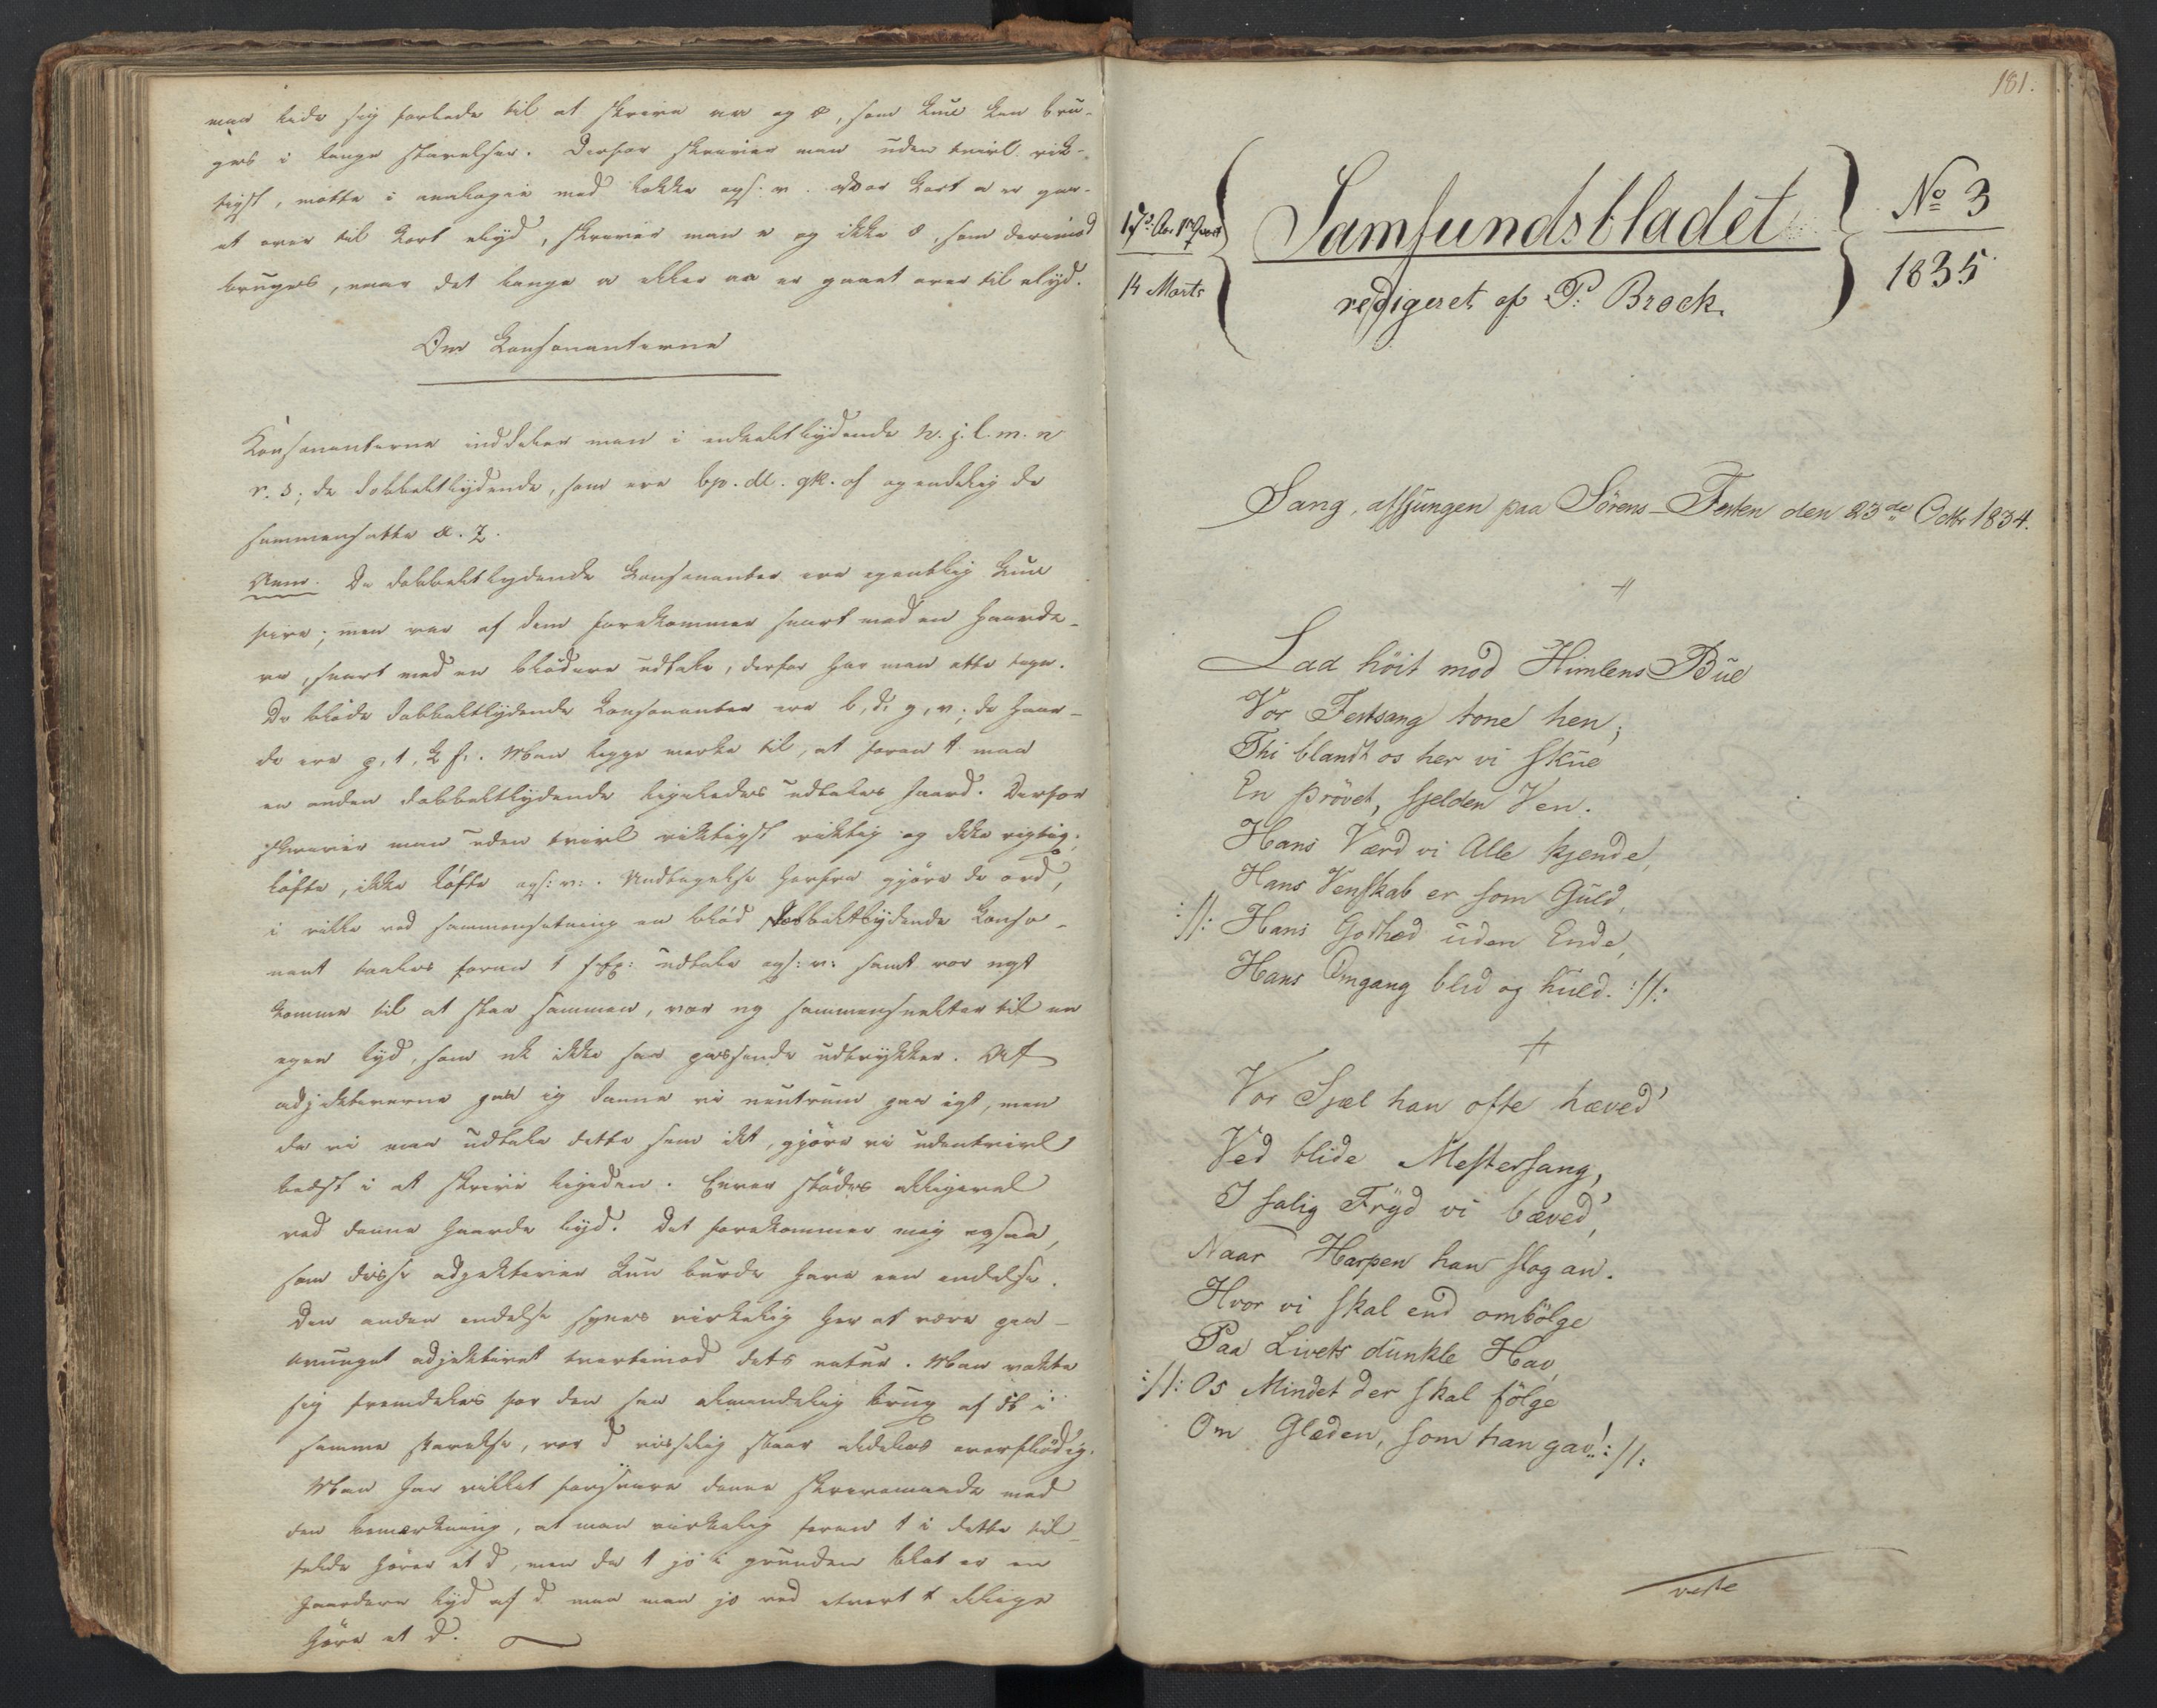 man lade sig forlede til at skrive aa og o, som kun kan bru-
ges i lange stavelser. Derfor skriver man uden tvivl rik-
tigst, måtte i analogie med lokke ogs: v. Hvor kort a er gaa-
et over til kort ålyd, skriver man a og ikke å, som derimod
bruges, naar det lange a eller aa er gaaet over til ålyd.
Om Konsonanterne
Konsonanterne inddeler man i enkeltlydende h. j. l. m. n
r. s; de dobbeltlydende, som ere bp. dt. gk. vf og endelig de
sammensatte x. z.
Anm. De dobbeltlydende konsonanter ere egentlig kun
fire; men vær af dem forekommer snart med en haarde-
re, snart med en blødere udtale, derfor har man otte tegn.
De bløde dobbeltlydende konsonanter ere b, d, g, v; de haar-
de ere p, t, k f. Man lægge mærke til, at foran t maa
en anden dobbeltlydende ligeledes udtales haard. Derfor
skriver man uden tvivl riktigst riktig og ikke rigtig;
løfte, ikke løfte ogs: v: . Undtagelse herfra gjøre de ord,
i vilke ved sammensætning en blød dobbeltlydende konso-
nant taales foran t f. Ex: udtale ogs: v: samt vor ngt
komme til at staa sammen, vor ng sammensmelter til en
egen lyd, som nk ikke saa passende udtrykker. Af
adjektiverne paa ig danne vi neutrum paa igt, men
da vi maa udtale dette som ikt, gjøre vi udentvivl
bedst i at skrive ligedan. Enver stødes alligevel
ved denne haarde lyd. Det forekommer mig ogsaa,
som disse adjektiver kun burde have een endelse.
Den anden endelse synes virkelig her at være paa-
tvunget adjektivet tvertimod dets natur. Man vokte
sig fremdeles for den saa almindelig brug af dt i
samme stavelse, vor d visselig staar aldeles overflødig.
Man har villet forsvare denne skrivemaade med
den bemærkning, at man virkelig foran t i dette til-
felde hører et d, men da t jo i grunden blot er en
haardere lyd af d maa man jo ved etvert t tillige
høre et d.
181.
17de Aa. 1ste
14 Marts
Samfundsbladet
redigeret af P. Brock.
No 3
1835
Sang, afsjungen paa Sörens-Festen den 23de Octbr 1834.
Lad höit mod Himlens Bue
Vor Festsang tone hen;
Thi blandt os her vi skue
En prövet, sjelden Ven.
Hans Værd vi Alle kjende,
Hans Venskab er som Guld,
:/: Hans Godhed uden Ende,
Hans Omgang blid og huld. :/:
Vor Sjæl han ofte hæved'
Ved blide Mestersang,
I salig Fryd vi bæved',
Naar Harpen han slog an.
Hvor vi skal end ombölge
Paa Livets dunkle Hav,
:/: Os Mindet der skal fölge
Om Glæden, som han gav! :/:
verte